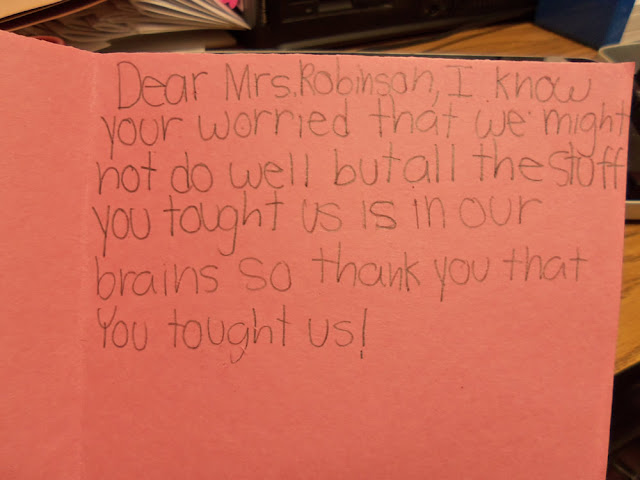 Dear Mrs. Robinson, I know
your worried that we might
not do well but all the stuff
you tought us is in our
brains so thank you that
You tought us!